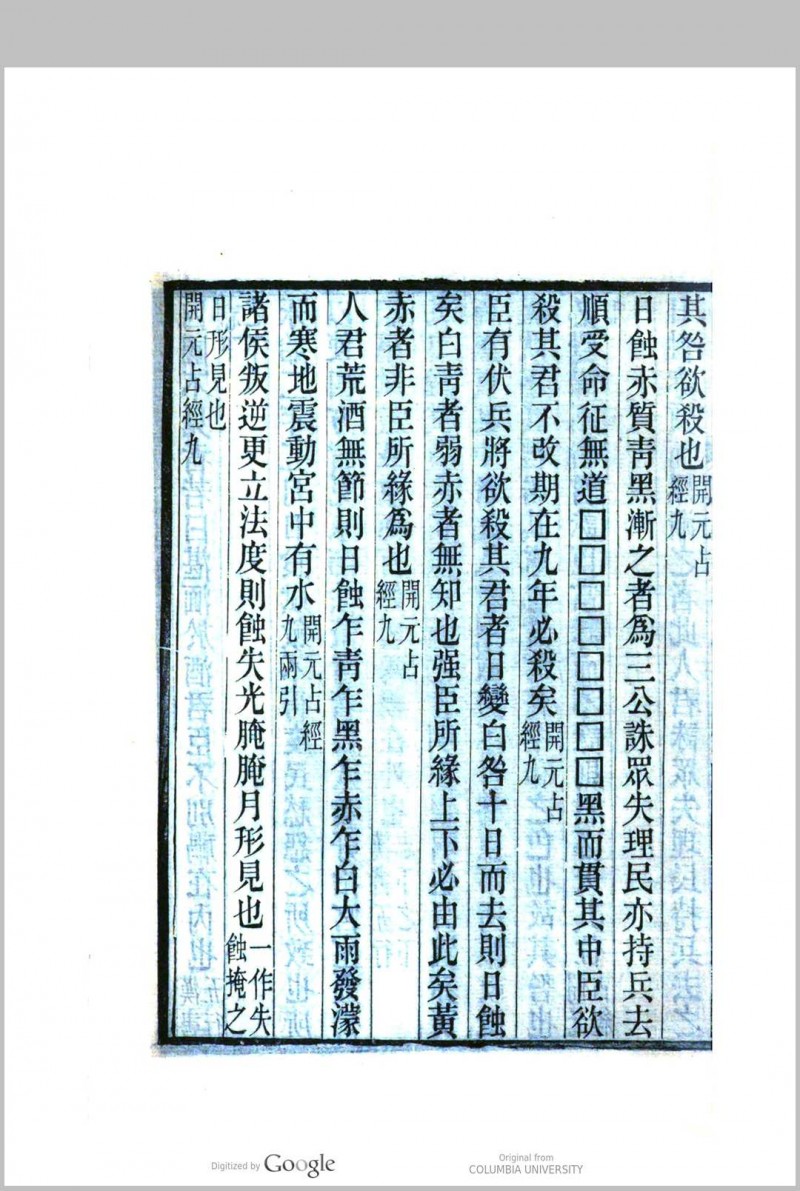 其咎欲殺也開元占經九
日蝕赤質靑黑漸之者爲三公誅眾失理民亦持兵去
順受命征無道□□□□□□□□黑而貫其中臣欲
殺其君不改期在九年必殺矣開元占經九
臣有伏兵將欲殺其君者日變白咎十日而去則日蝕
矣白靑者弱赤者無知也强臣所緣上下必由此矣黃
赤者非臣所緣爲也開元占經九
人君荒酒無節則日蝕乍靑乍黑乍赤乍白大雨發濛
而寒地震動宮中有水開元占經九兩引
諸侯叛逆更立法度則蝕失光腌腌月形見也一作失蝕掩之
日形見也開元占經九
Digitized by Google
Original from
COLUMBIA UNIVERSITY